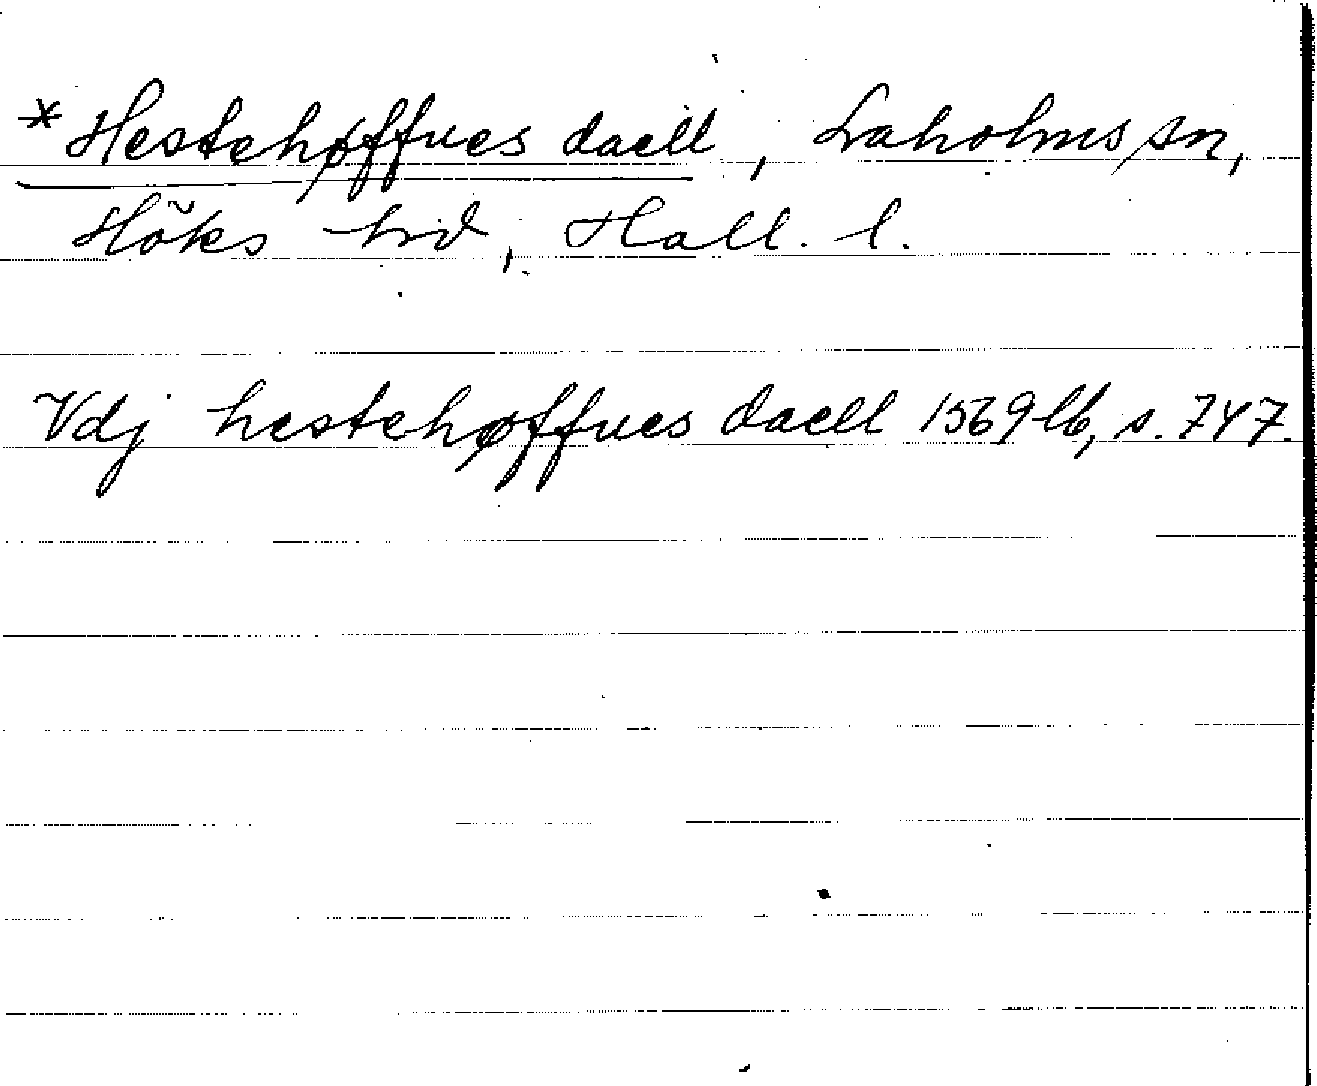 *Hestehøffues daell, Laholms sn,
Höks hrd, Hall. l.
Vdj hestehøffues daell 1569 lb, s. 747.